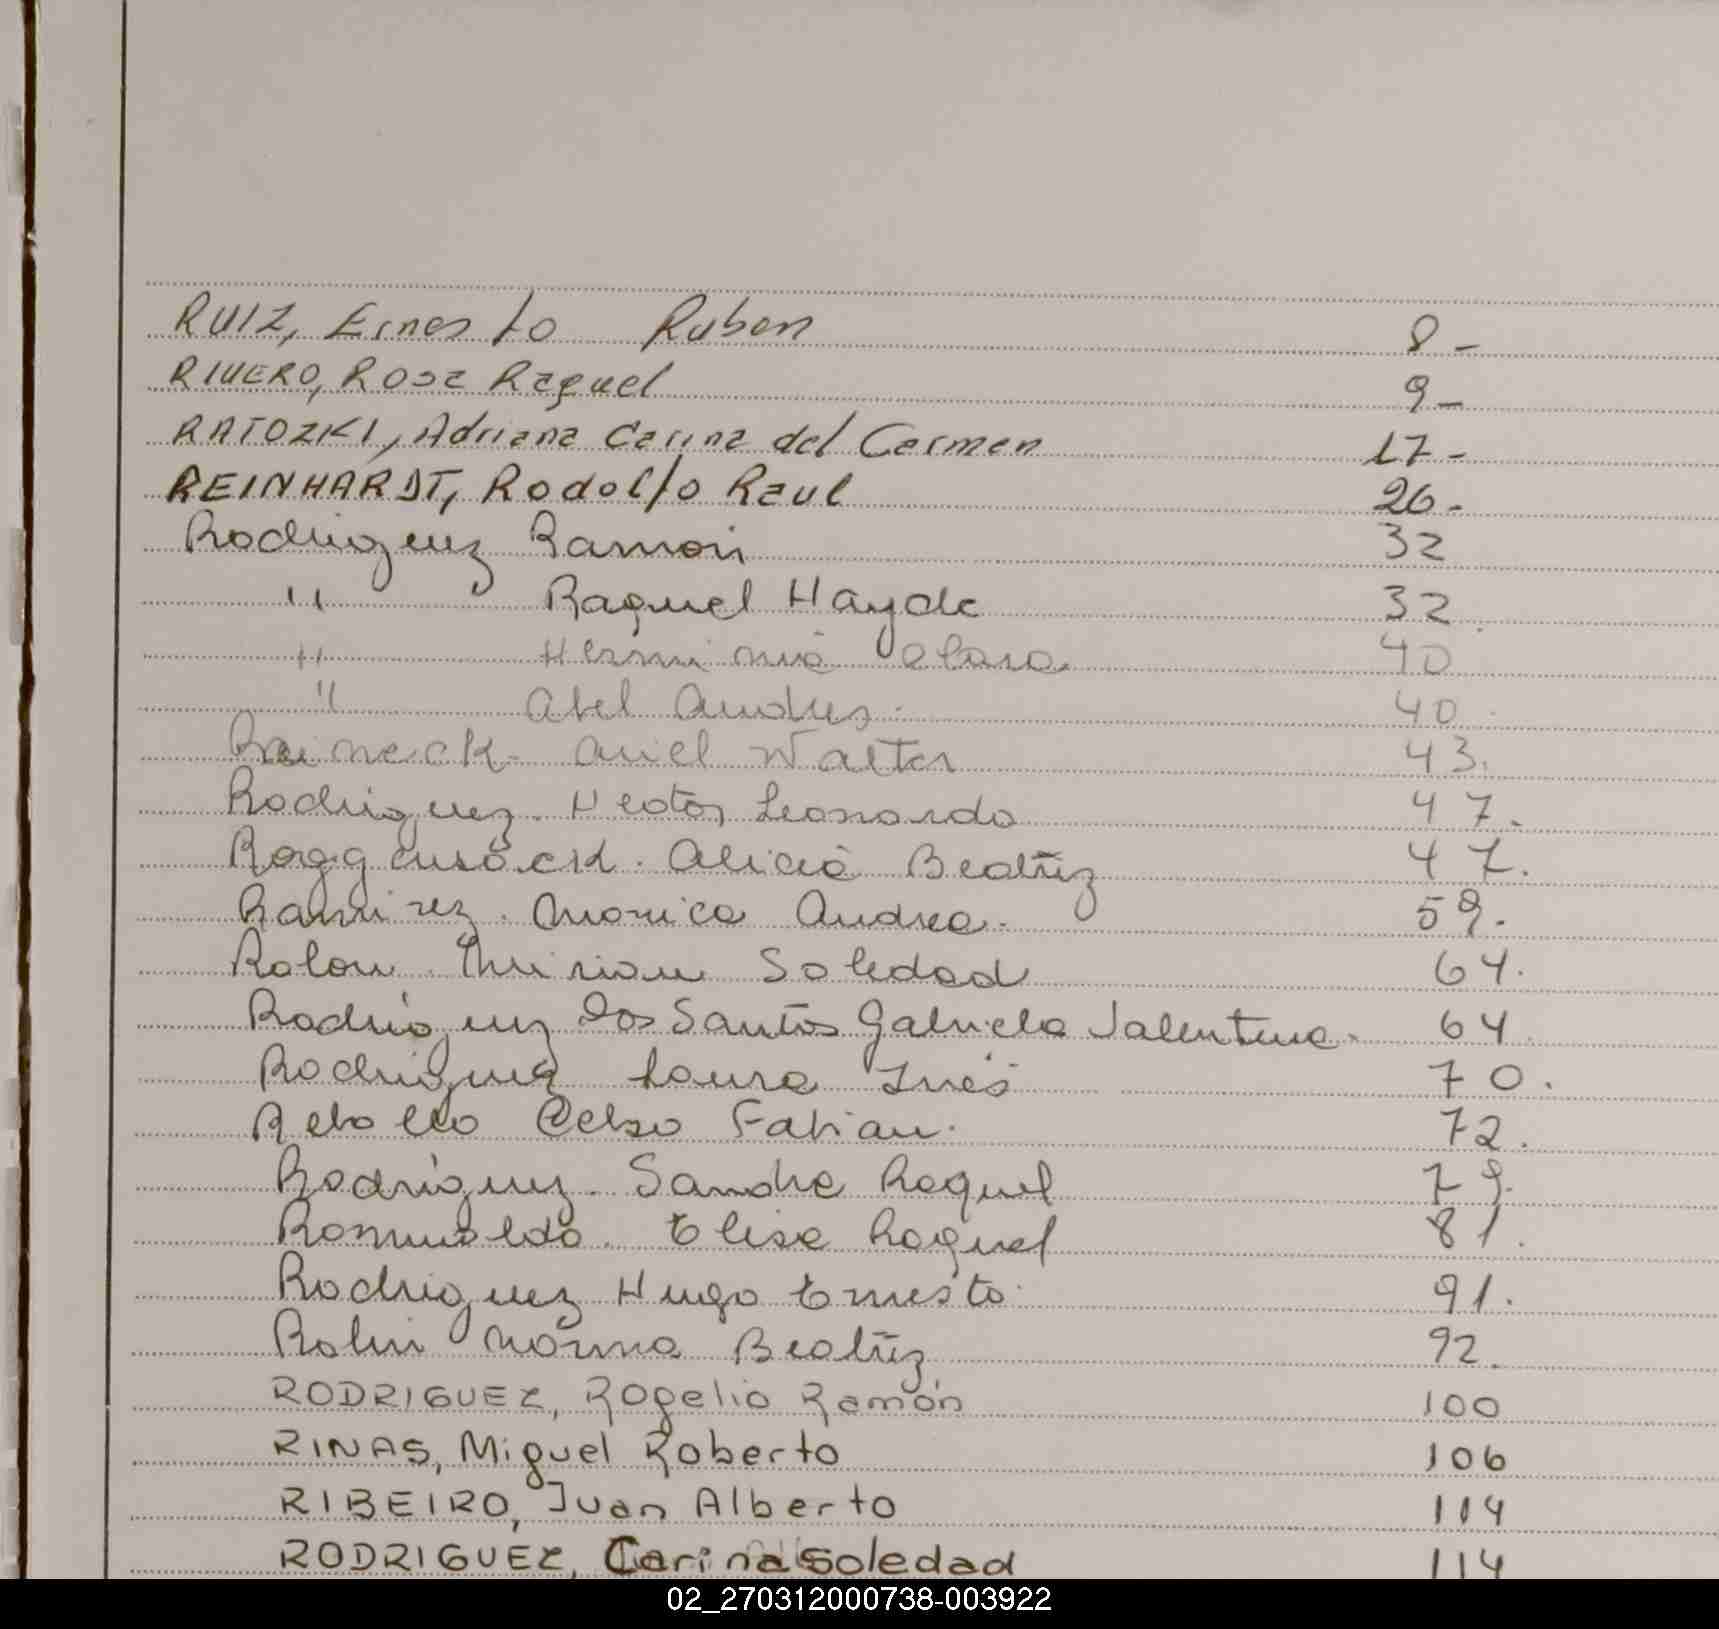 RUIZ, Ernesto Ruben 8-
RIVERO, Rosa Raquel 9-
RATOZKI, Adriana Carina del Carmen 17-
REINHARDT, Rodolfo Raul 26-
Rodriguez Ramon 32
" Raquel Hayde 32
" Herminia Clara 40
" Abel Andres. 40
Reineck. Ariel Walter 43.
Rodriguez. Hector Leonardo 47.
Roggenback. Alicia Beatriz 47.
Ramirez. Monica Andrea. 59.
Rolon Miriam Soledad 64.
Rodriguez Dos Santos Gabriela Valentina. 64
Rodriguez Laura Inés 70.
Rebollo Celso Fabian. 72.
Rodriguez. Sandra Raquel 79.
Romualdo. Elisa Raquel 81.
Rodriguez Hugo Ernesto. 91.
Rolin Norma Beatriz 92.
RODRIGUEZ, Rogelio Ramón 100
RINAS, Miguel Roberto 106
RIBEIRO, Juan Alberto 114
RODRIGUEZ, Carina Soledad 114
02_270312000738-003922